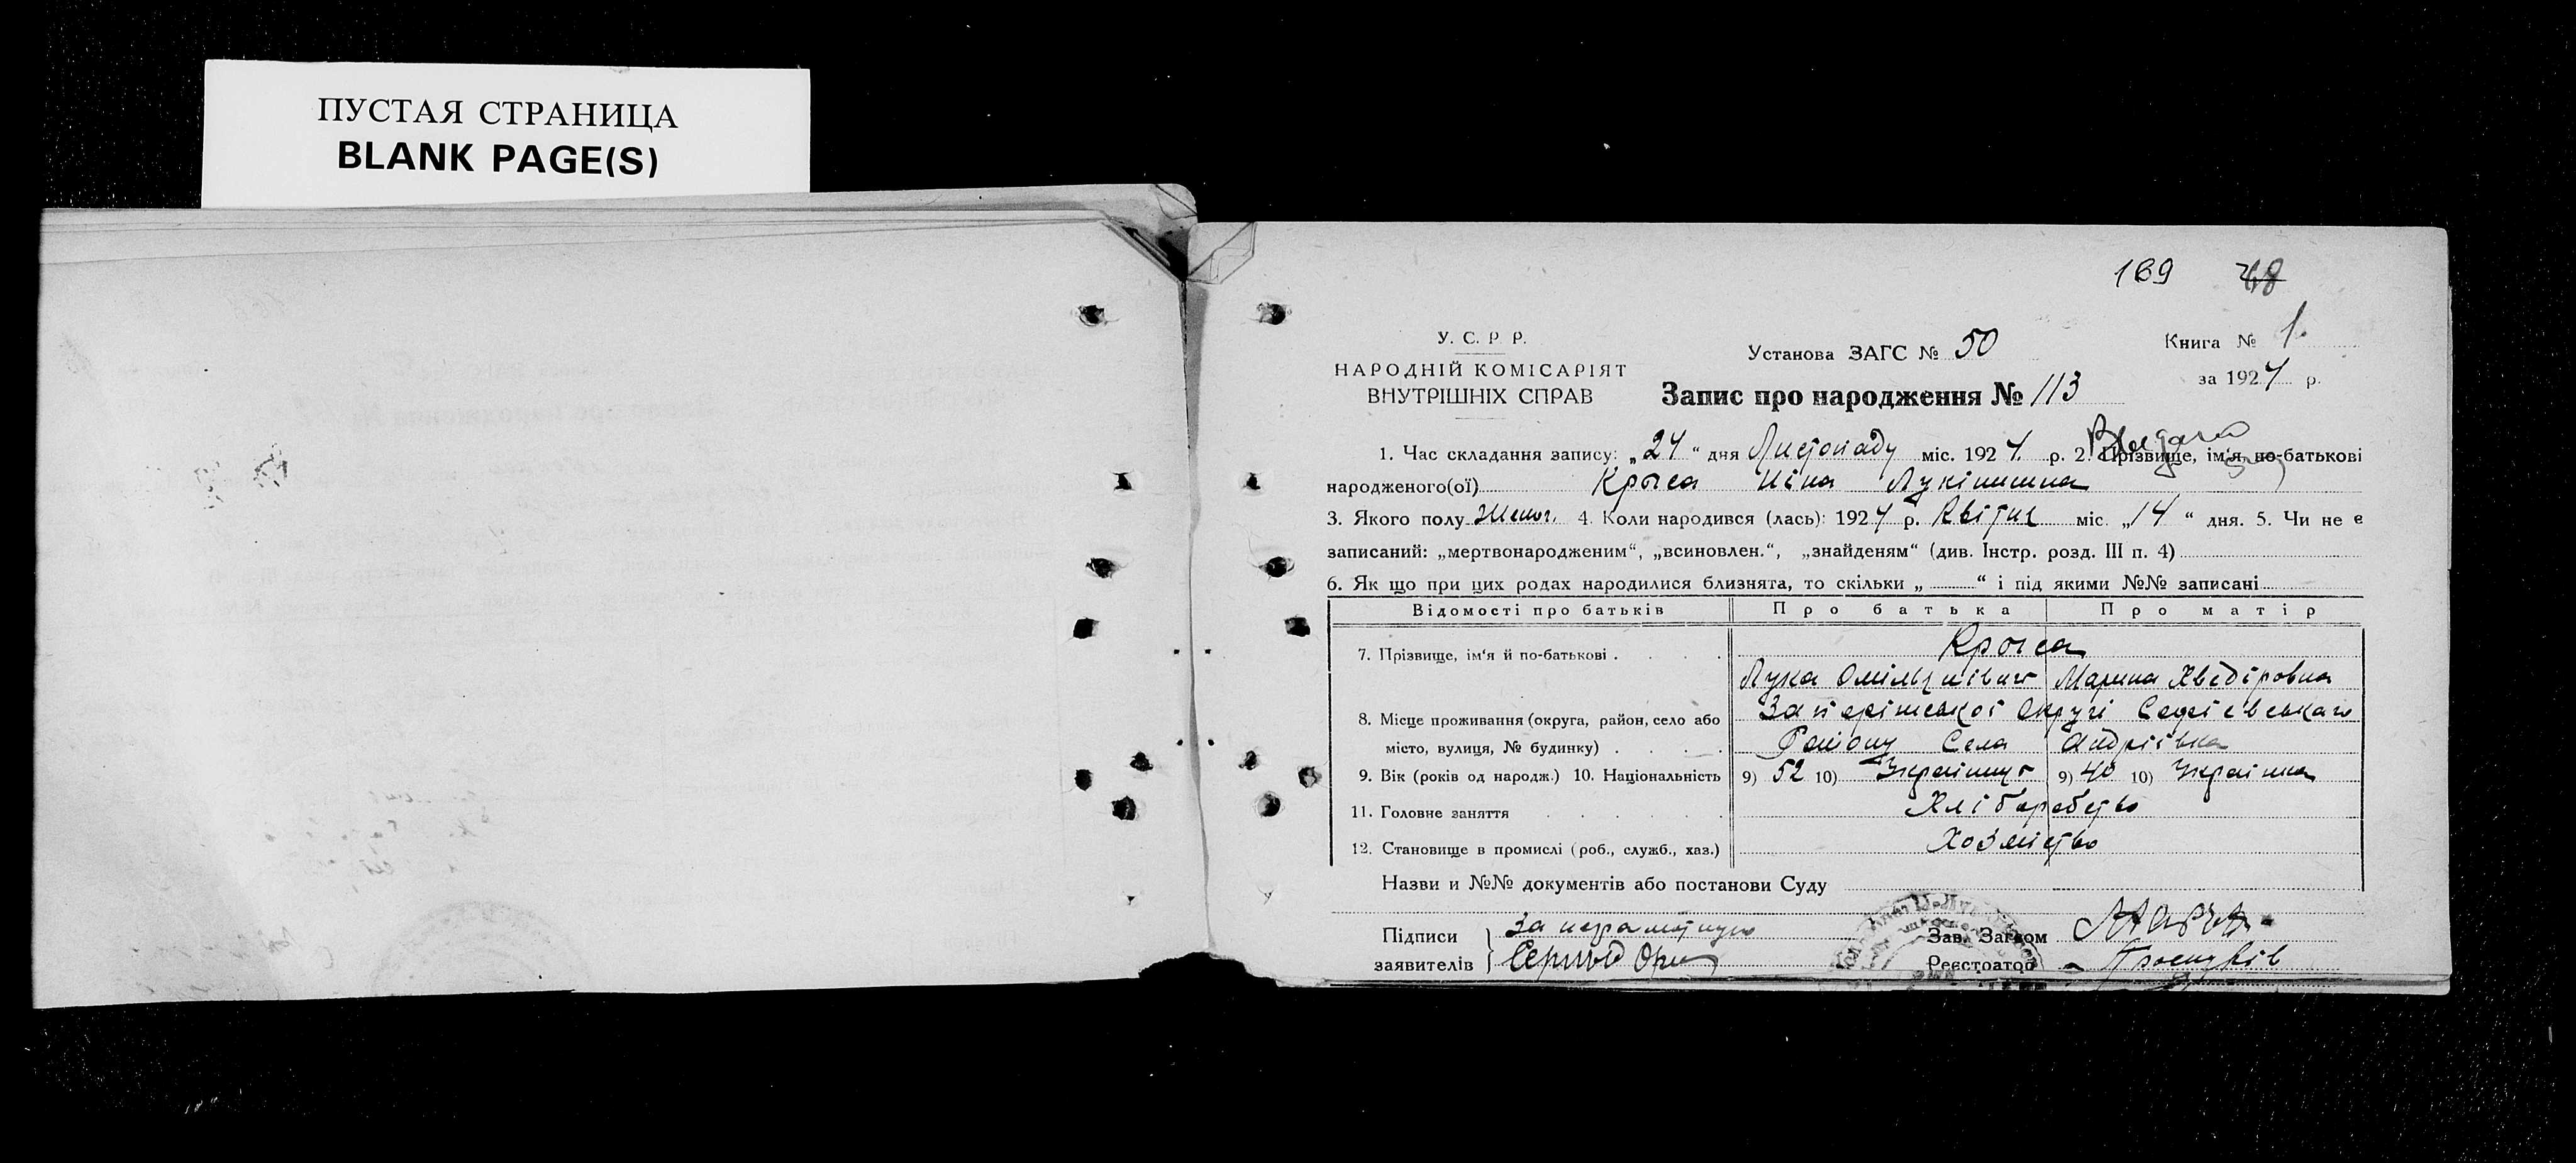 ПУСТАЯ СТРАНИЦА
BLANK PAGE(S)
169 48
У. С. Р. Р.
НАРОДНІЙ КОМІСАРІЯТ
ВНУТРІШНІХ СПРАВ
Установа ЗАГС № 50
Книга № 1.
за 1924 р.
Запис про народження № 113
1. Час складання запису: „24“ дня Листопаду міс. 1924. р. 2. Прізвище, ім'я, по-батькові
народженого(ої) Крыса Ніна Лукінишна
3. Якого полу Женог. 4. Коли народився (лась): 1924 р. Квітня міс. „14“ дня. 5. Чи не є
записаний: „мертвонародженим“, „всиновлен.“, „знайденям“ (див. Інстр. розд. III п. 4)
6. Як що при цих родах народилися близнята, то скільки „ “ і під якими №№ записані
Відомості про батьків Про батька Про матір
7. Прізвище, ім'я й по-батькові . Крыса
Лука Омільянівич Марина Хведіровна
8. Місце проживання (округа, район, село або Запорішської Округі Софієвськаго
місто, вулиця, № будинку) . Району Села Андріівка
9. Вік (років од народж.) 10. Національність 9) 52 10) Українець 9) 40 10) Українка
11. Головне заняття Хліборобство
12. Становище в промислі (роб., служб., хаз.) Хозяйство
Назви и №№ документів або постанови Суду
Підписи За неграмотную Зав. Загсом
заявителів Реєстратор